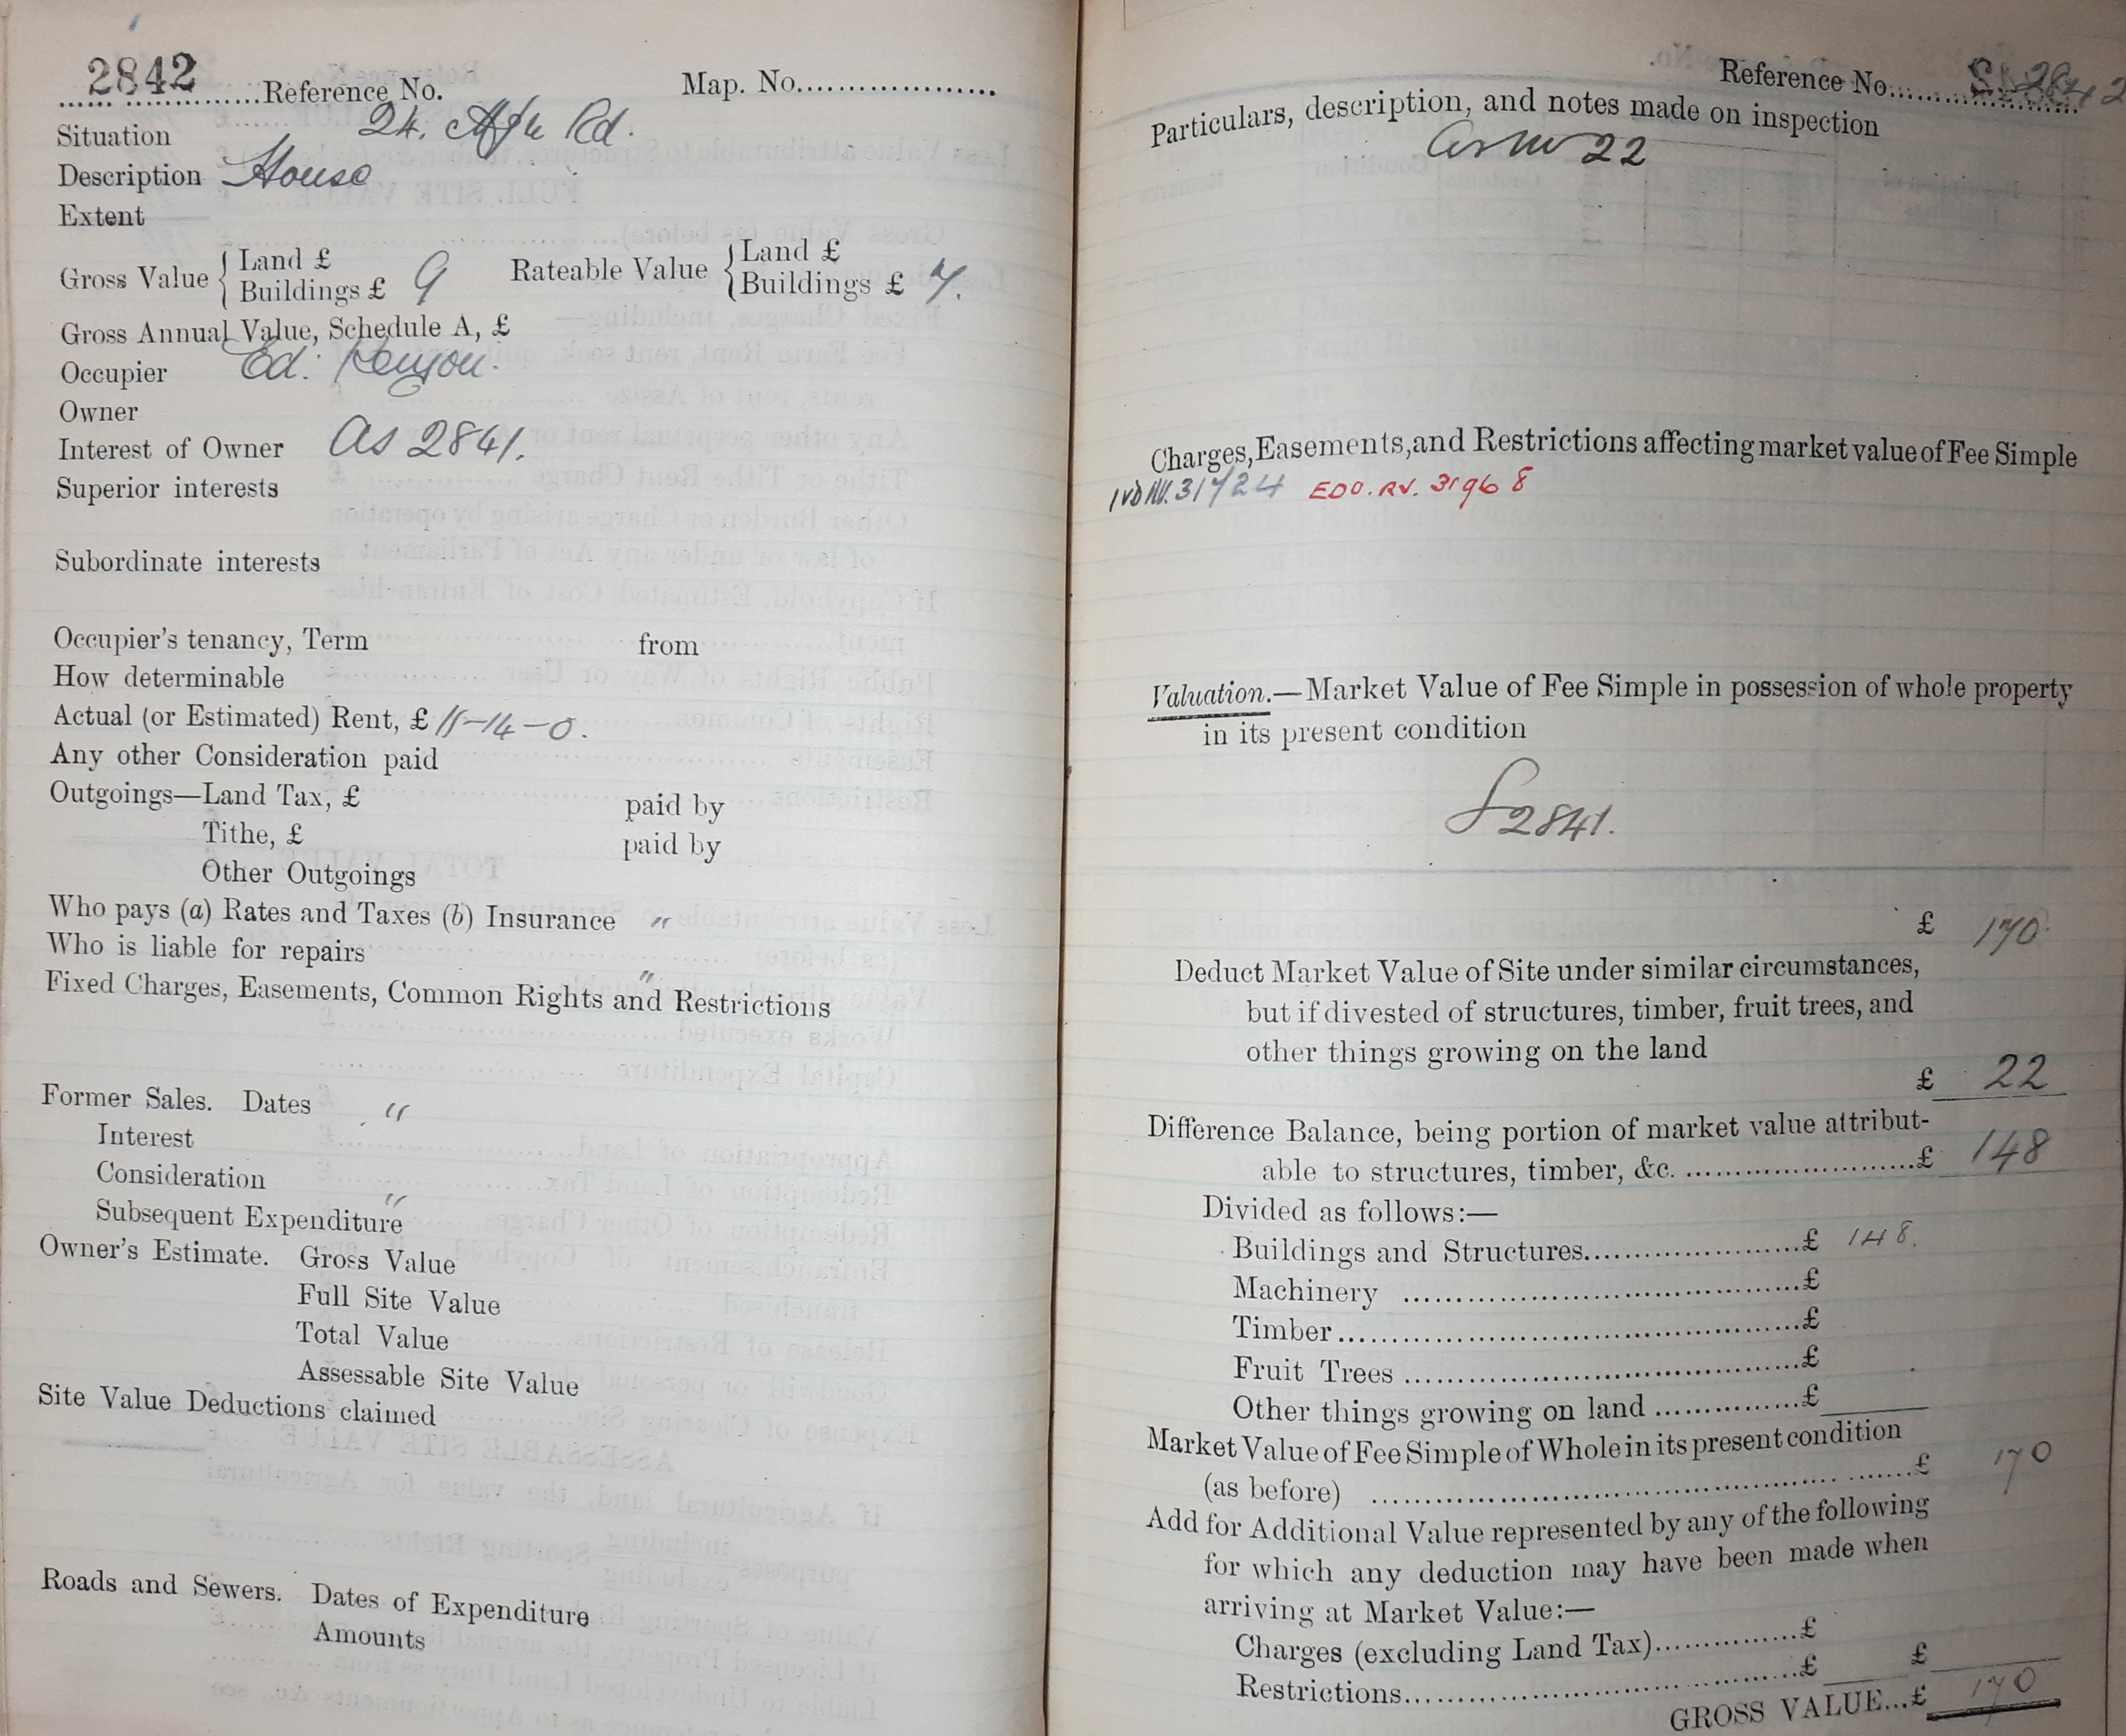 2842
Reference No. Map. No
Situation 24. Rd.
Description House
Extent
Gross Value { Land £ Rateable Value { Land £
Buildings £ 9 Buildings £ 7.
Gross Annual Value, Schedule A, £
Occupier Ed: Kenyon.
Owner
Interest of Owner As 2841.
Superior interests
Subordinate interests
Occupier's tenancy, Term from
How determinable
Actual (or Estimated) Rent, £ 11-14-0.
Any other Consideration paid
Outgoings—Land Tax, £ paid by
Tithe, £ paid by
Other Outgoings
Who pays (a) Rates and Taxes (b) Insurance "
Who is liable for repairs "
Fixed Charges, Easements, Common Rights and Restrictions
Former Sales. Dates "
Interest
Consideration "
Subsequent Expenditure
Owner's Estimate. Gross Value
Full Site Value
Total Value
Assessable Site Value
Site Value Deductions claimed
Roads and Sewers. Dates of Expenditure
Amounts
Reference No. 2842
Particulars, description, and notes made on inspection
22
Charges, Easements, and Restrictions affecting market value of Fee Simple
31724 EDO. RV. 31968
Valuation.—Market Value of Fee Simple in possession of whole property
in its present condition
2841.
£ 170.
Deduct Market Value of Site under similar circumstances,
but if divested of structures, timber, fruit trees, and
other things growing on the land
£ 22
Difference Balance, being portion of market value attribut-
able to structures, timber, &c. £ 148
Divided as follows:—
Buildings and Structures £ 148.
Machinery £
Timber £
Fruit Trees £
Other things growing on land £
Market Value of Fee Simple of Whole in its present condition
(as before) £ 170
Add for Additional Value represented by any of the following
for which any deduction may have been made when
arriving at Market Value:—
Charges (excluding Land Tax) £
Restrictions £ £
GROSS VALUE...£ 170